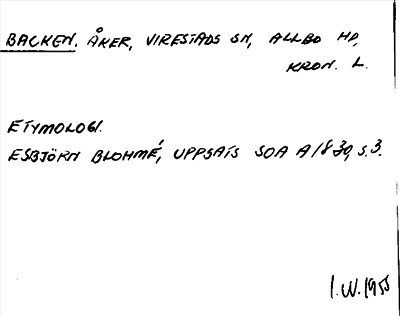 BACKEN. ÅKER, VIRESTADS SN, ALLBO HD,
KRON. L.
ETYMOLOGI.
ESBJÖRN BLOHMÉ, UPPSATS SOA A 1839, S. 3.
I.W. 1955